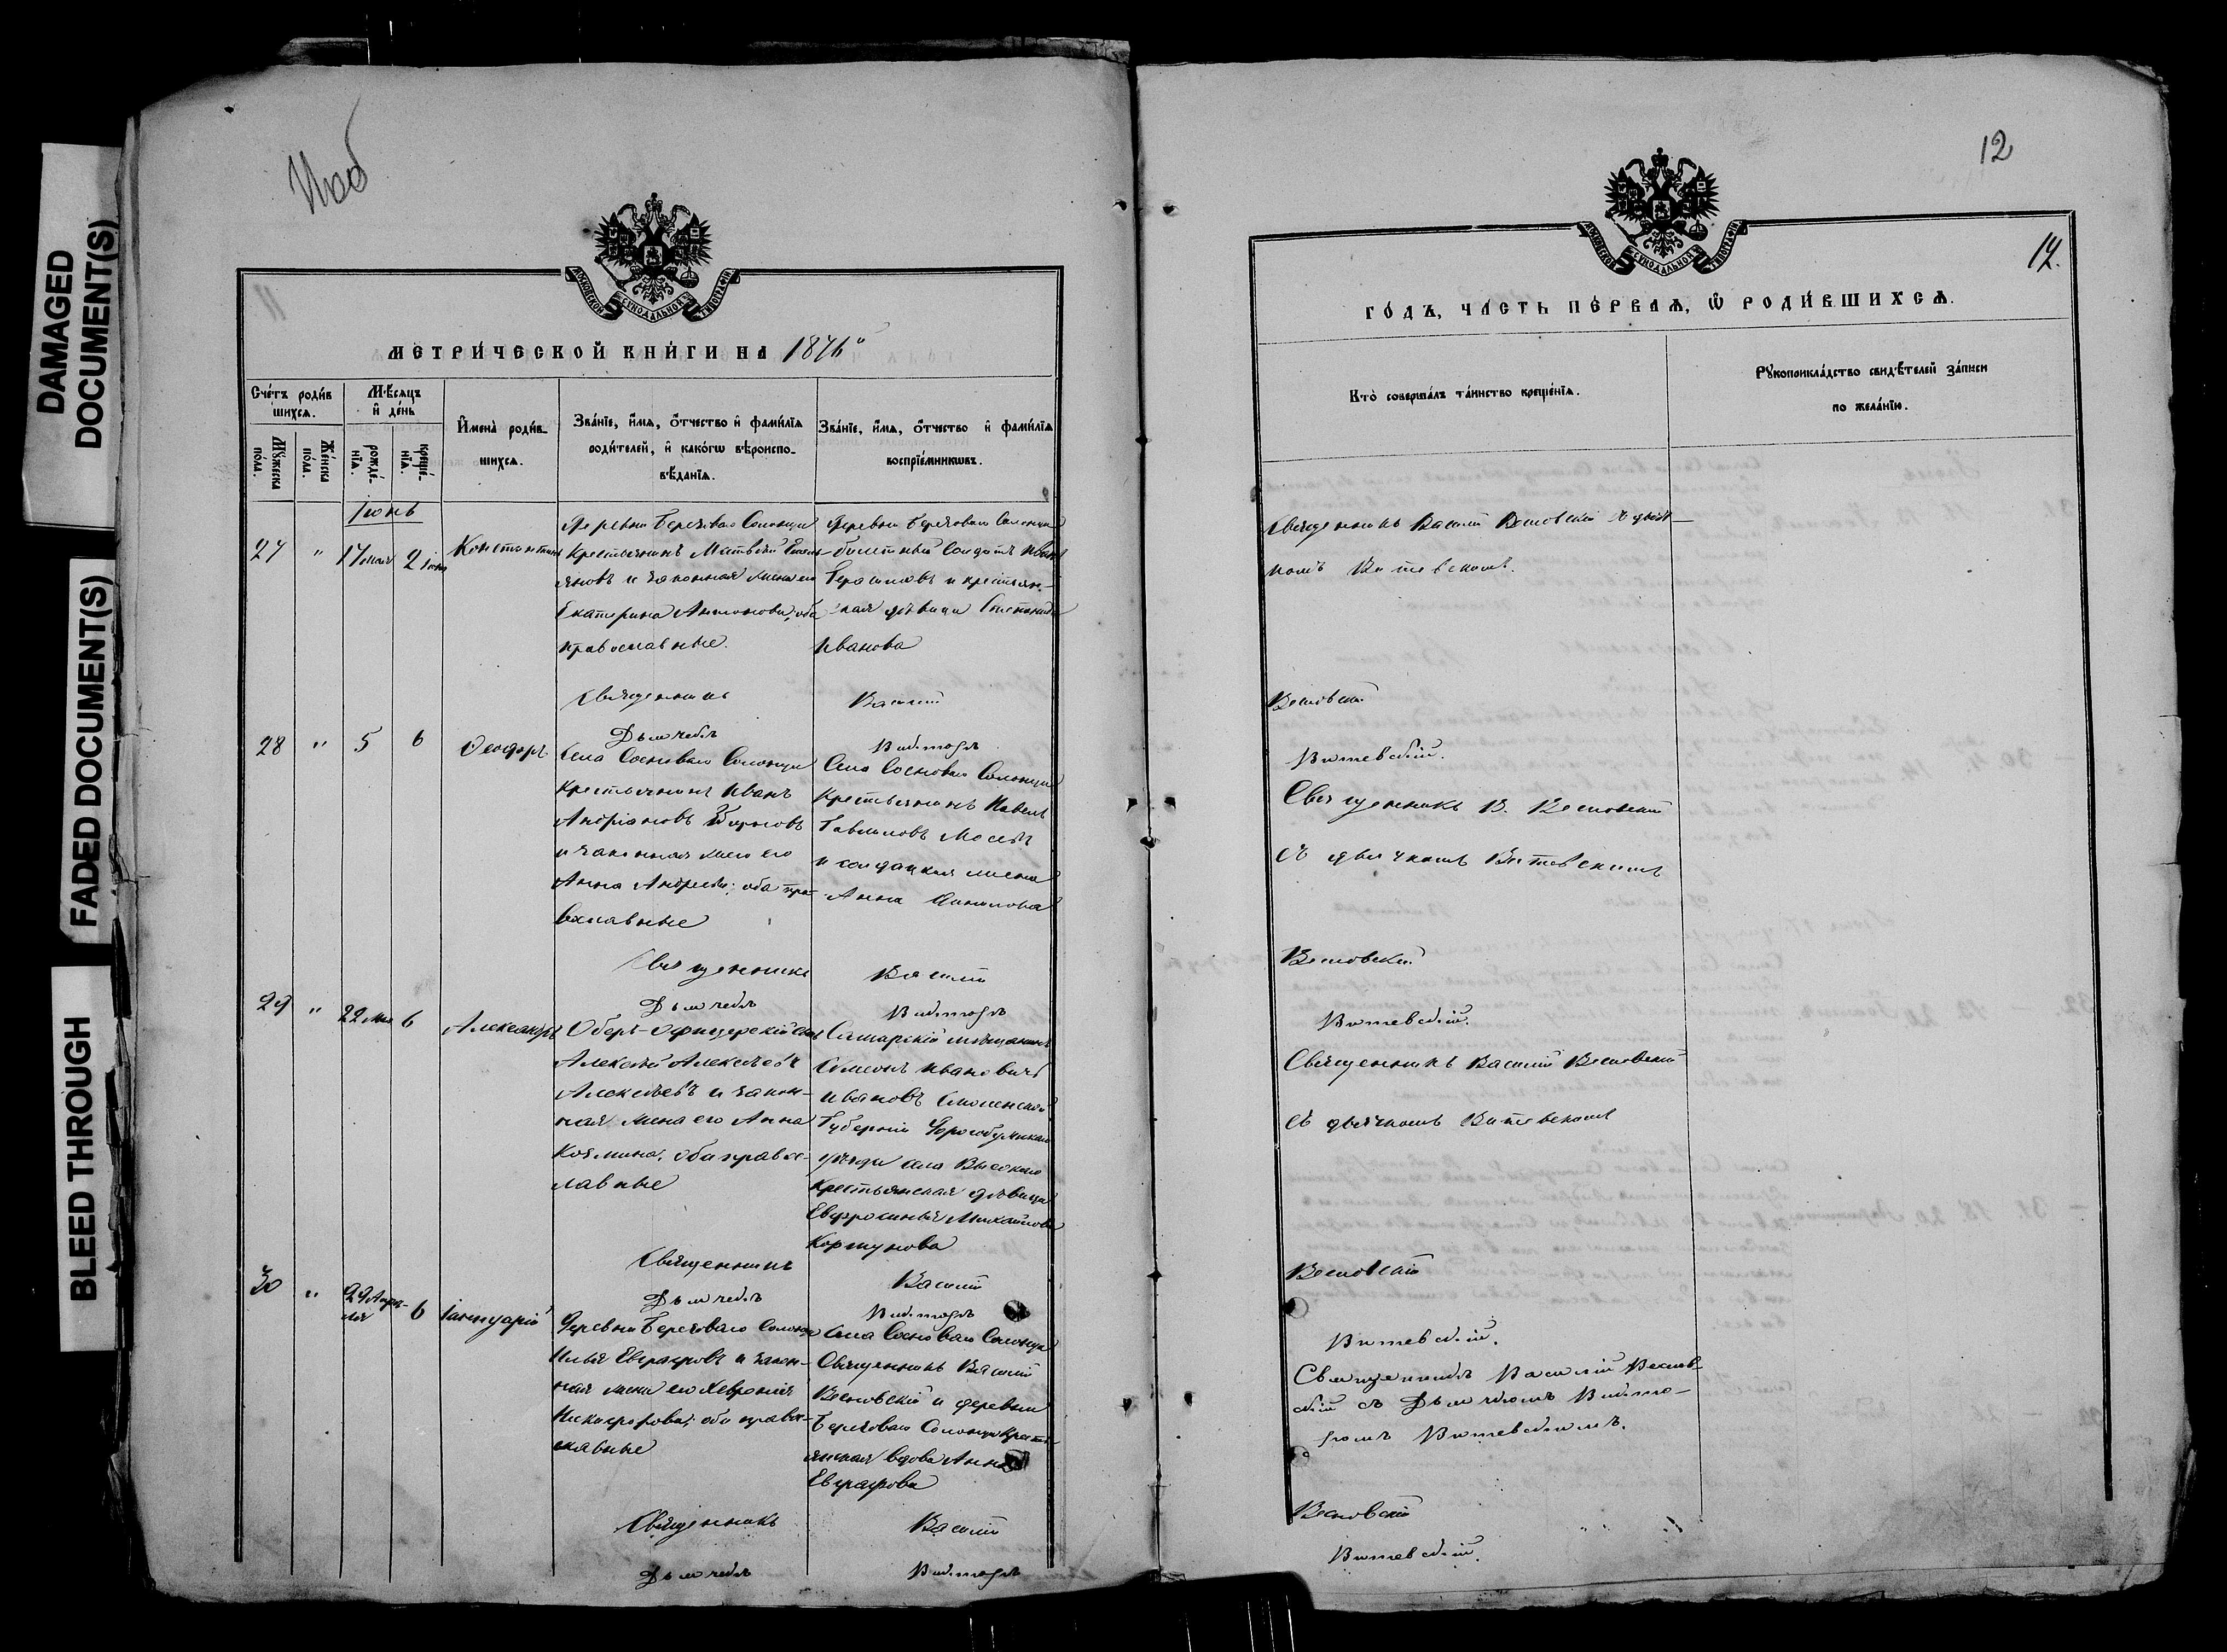 DAMAGED
DOCUMENT(S)
FADED DOCUMENT(S)
BLEED THROUGH
12
14.
МОСКОВСКОЙ СѴНОДАЛЬНОЙ ТИПОГРАФІИ
МЕТРИ́ЧЕСКОЙ КНИ́ГИ НА 1876
Сче́тъ роди́в
шихся.
Мꙋ́жеска
по́ла.
Же́нска
по́ла.
Мѣ́сяцъ
и҆ де́нь
рожде́-
нїѧ.
креще́-
нїѧ.
И҆мена̀ роди́в-
шихсѧ.
Зва́нїе, и҆́мѧ, ѻ҆́тчество и҆ фами́лїѧ
роди́телей, и҆ како́гѡ вѣроиспо-
вѣ́данїѧ.
Зва́нїе, и҆́мѧ, ѻ҆́тчество и҆ фами́лїѧ
воспрїе́мникѡвъ.
Іюнь
27 " 17 мая 2 іюня
Константинъ
Деревни Березоваго Солонца
Крестьянинъ Матвей
и законная жена его
Екатерина Антонова, оба
православные.
Деревни Березоваго Солонца
билетный солдатъ Иванъ
Герасимовъ и крестьян-
ская девица Степанида
Иванова
Священникъ Василій
Дьячекъ Викторъ
28 " 5 6
Феодоръ
Села Сосноваго Солонца
Крестьянинъ Иванъ
Андріановъ
и законная жена его
Анна Андреева; оба пра-
вославные
Села Сосноваго Солонца
Крестьянинъ Павелъ
Гавриловъ
и солдатская жена
Анна
Священникъ Василій
Дьячекъ Викторъ
29 " 22 мая 6
Александръ
Оберъ-офицерскій сынъ
Алексей Алексеевъ
Алексеевъ и закон-
ная жена его Анна
Козмина, оба правос-
лавные
Самарскій мещанинъ
Симеонъ Ивановичъ
Ивановъ Смоленской
Губерніи Дорогобужскаго
уезда села Высокаго
Крестьянская девица
Евфросинья Михайлова
Коршунова
Священникъ Василій
Дьячекъ Викторъ
30 " 29 Апре-
ля 6
Іаннуарій
Деревни Березоваго Солонца
Илья Евграфовъ и закон-
ная жена его Феврония
Никифорова; оба правос-
лавные
Села Сосноваго Солонца
Священникъ Василій
Весновскій и деревни
Березоваго Солонца Кресть-
янская вдова Анна
Евграфова
Священникъ Василій
Дьячекъ Викторъ
МОСКОВСКОЙ СѴНОДАЛЬНОЙ ТИПОГРАФІИ
ГО́ДЪ, ЧА́СТЬ ПЕ́РВАѦ, Ѡ҆ РОДИ́ВШИХСѦ.
Кто̀ соверша́лъ та́инство креще́нїѧ.
Рꙋкоприкла́дство свидѣ́телей за́писи
по жела́нїю.
Священникъ Василій Весновскій съ дьяч-
комъ Витевскимъ.
Весновскій
Витевскій.
Священникъ В. Весновскій
съ дьячкомъ Витевскимъ
Весновскій
Витевскій.
Священникъ Василій Весновскій
съ дьячкомъ Витевскимъ
Весновскій
Витевскій.
Священникъ Василій Веснов-
скій съ Дьячкомъ Викто-
ромъ Витевскимъ.
Весновскій
Витевскій.